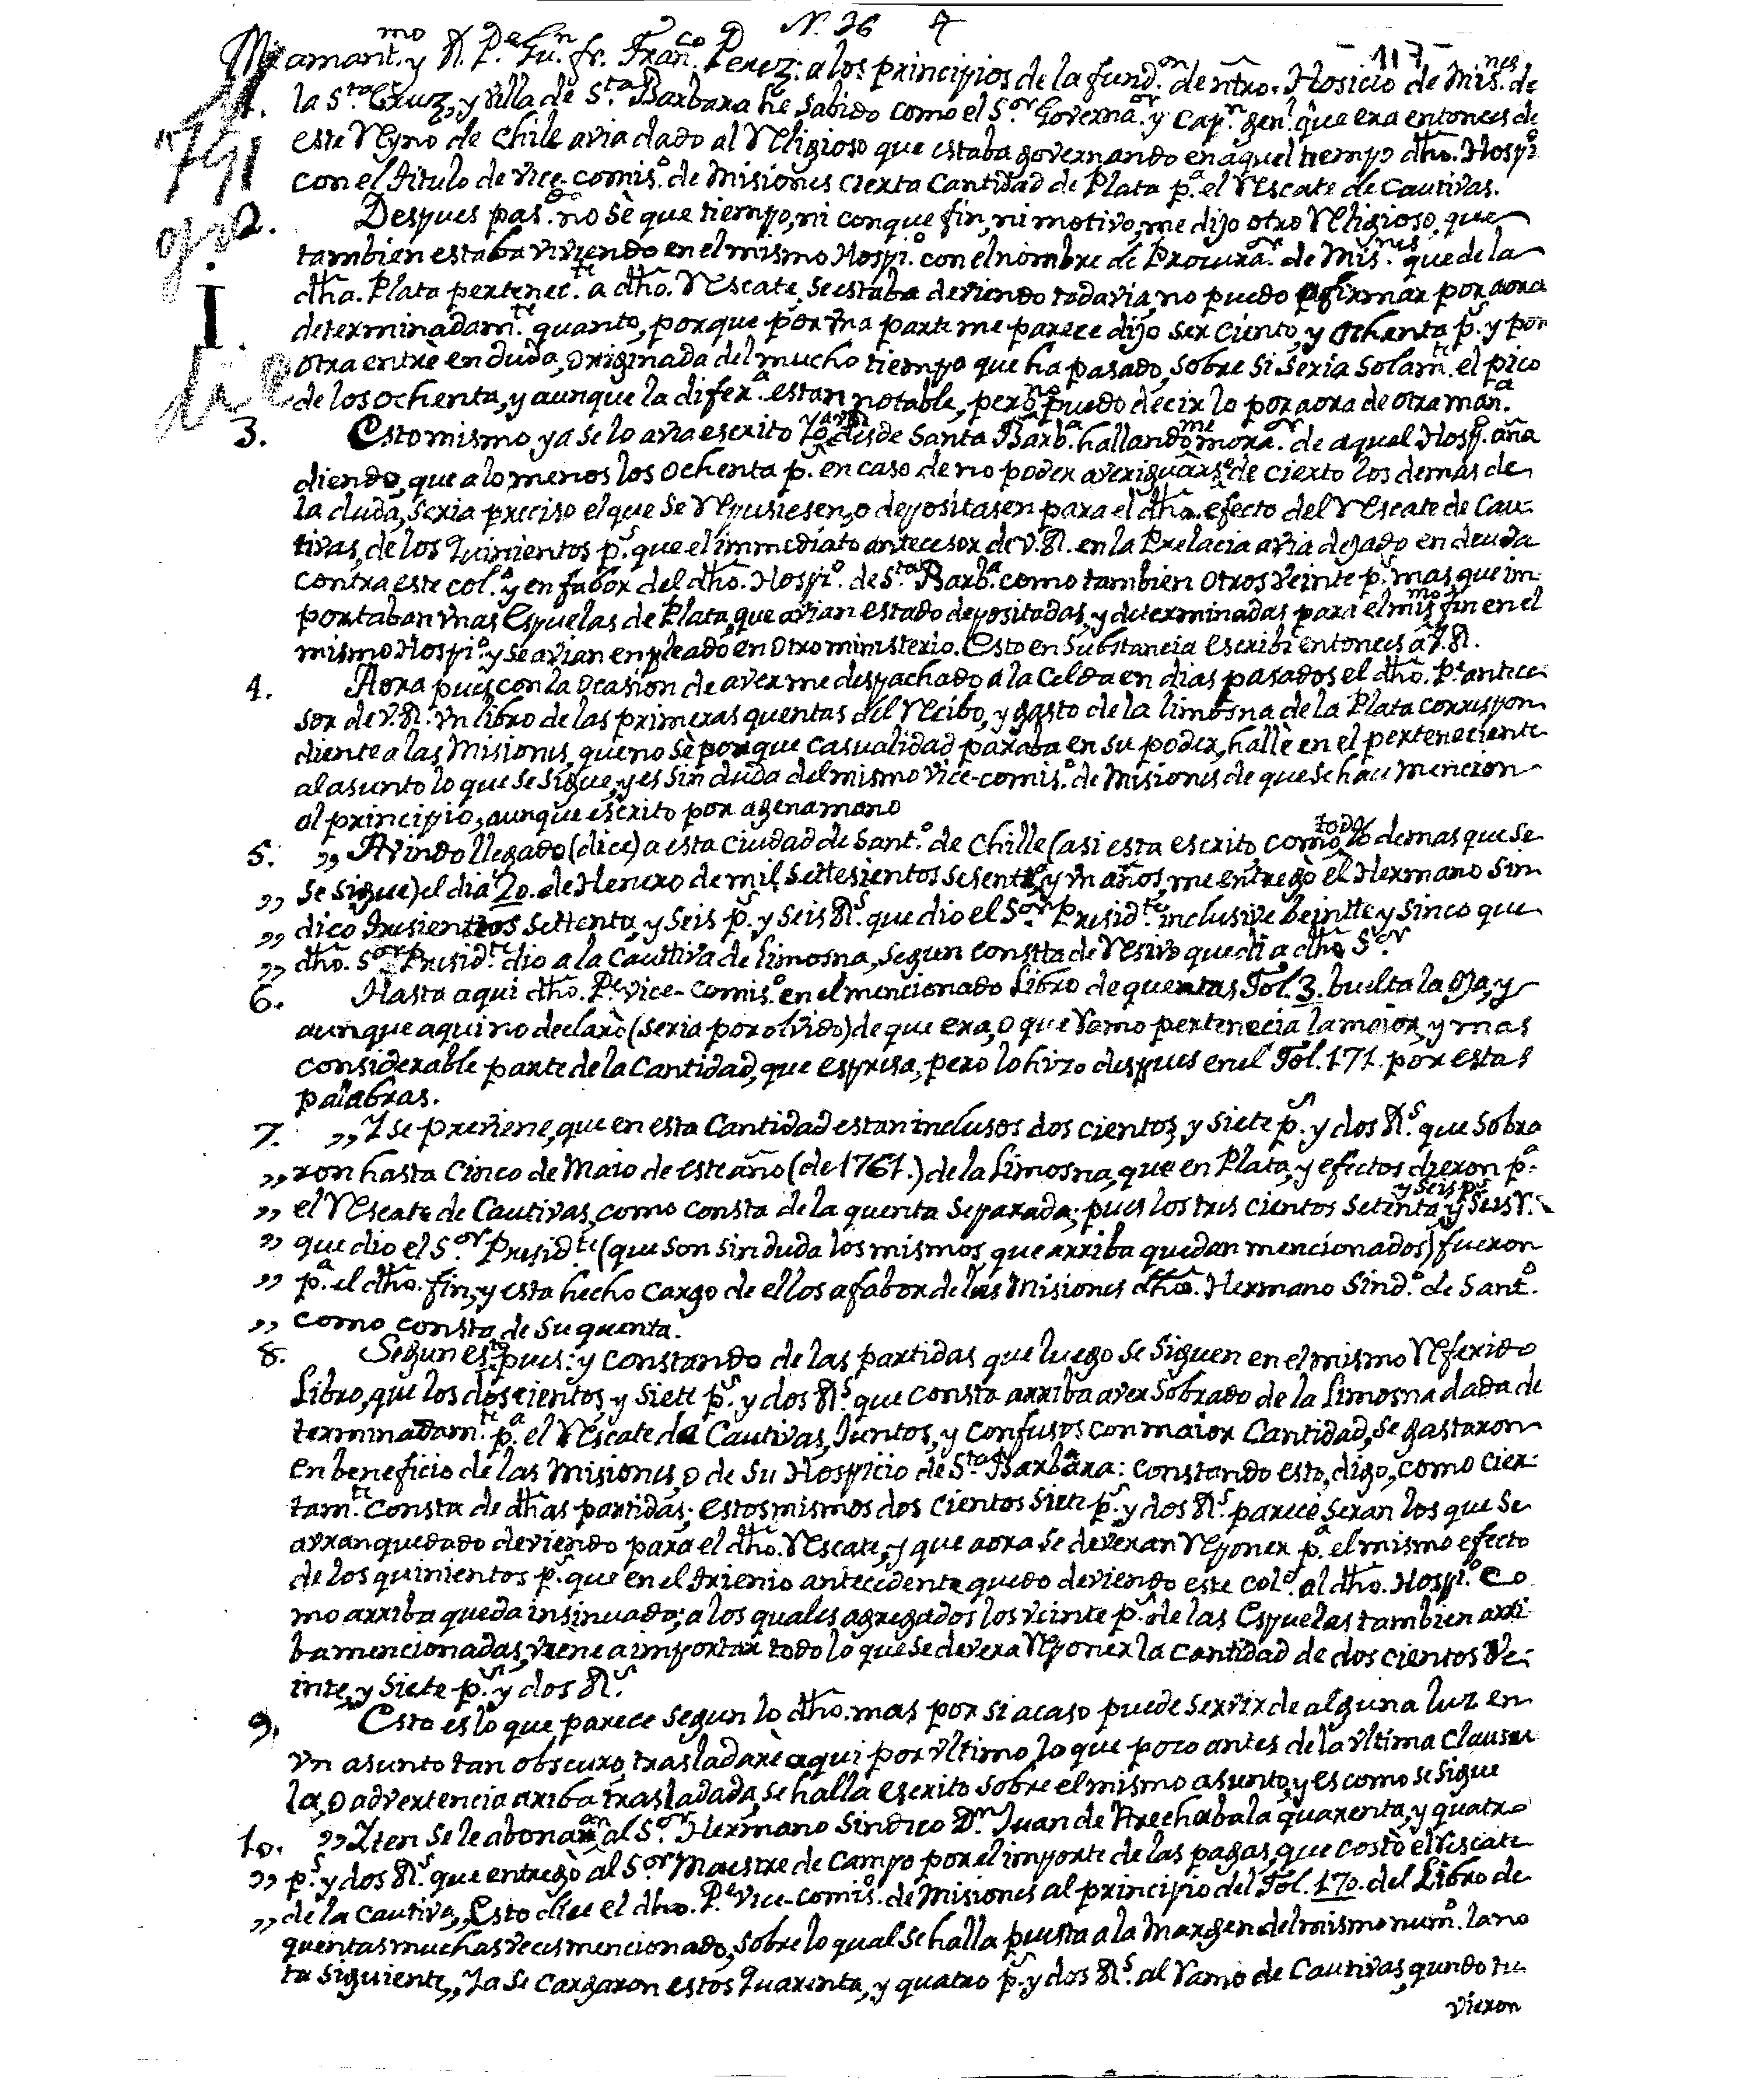 N. 36
117
Mi amant.mo y R. P.e Gu.n fr. Fran.co Perez: a los principios de la fund.on de ntro. Hosicio de Mis.nes de
1. la S.ta Cruz, y Villa de S.ta Barbara hê sabido como el S.or Governa.or y Cap.n gen.l que era entonces de
este Reyno de Chile avia dado al Religioso que estaba governando en aquel tiempo dho. Hospi.o
con el titulo de vice-comis.o de Misiones cierta Cantidad de Plata p.a el Rescate de Cautivas.
2. Despues pas.do no sè que tiempo, ni con que fin, ni motivo, me dijo otro Religioso, que
tambien estaba viviendo en el mismo Hospi.o con el nombre de Procura.or de Mis.nes que de la
dha. Plata pertenec.te a dho. Rescate, se estaba deviendo todavia, no puedo afirmar por aora
determinadam.te quanto, porque por vna parte me parece dijo ser ciento, y ochenta p.s y por
otra entrè en duda, originada del mucho tiempo que ha pasado, sobre si seria solam.te el pico
de los ochenta, y aunque la difer.a es tan notable, pero no puedo decirlo por aora de otra man.a
3. Esto mismo ya se lo avia escrito Yo a V.R. desde Santa Barb.a hallandome mora.or de aquel Hosp.o aña
diendo, que a lo menos los ochenta p.s en caso de no poder averiguarse de cierto los demas de
la duda, seria preciso el que se repusiesen, o depositasen para el dho. efecto del Rescate de Cau-
tivas, de los Quinientos p.s que el immediato antecesor de V.R. en la Prelacia avia dejado en deuda
contra este col.o y en fabor del dho. Hospi.o de S.ta Barb.a como tambien otros veinte p.s mas que im-
portaban vnas Espuelas de Plata, que avian estado depositadas, y determinadas para el mis.mo fin en el
mismo Hospi.o y se avian enpleado en otro ministerio. Esto en substancia escribì entonces a V.R.
4. Aora pues con la ocasion de averme despachado a la Celda en dias pasados el dho. P.e antece-
sor de V.R. vn libro de las primeras quentas del Recibo, y gasto de la limosna de la Plata correspon
diente a las Misiones, que no sè por que casualidad paraba en su poder, hallè en el perteneciente
al asunto lo que se sigue, y es sin duda del mismo vice-comis.o de Misiones de que se hace mencion
al principio, aunque escrito por agena mano
5. ,, Avindo llegado (dice) a esta ciudad de Sant.o de Chille (asi esta escrito como todo lo demas que se
,, se sigue) el dia 20. de Henero de mil settesientos sesentta, y vn años, me entregò el Hermano Sin
,, dico tresienttos settenta, y seis p.s y seis R.s que dio el S.or Presid.te inclusive beintte y sinco que
,, dho. S.or Presid.te dio a la Cauttiva de limosna, segun constta de Resivo que di a dho S.or
6. Hasta aqui dho. P.e vice-comis.o en el mencionado Libro de quentas Fol. 3. buelta la oja, y
aunque aqui no declarò (seria por olvido) de que era, o que ramo pertenecia la maior, y mas
considerable parte de la Cantidad, que espresa, pero lo hizo despues en el Fol. 171. por estas
palabras.
7. ,, Y se previene, que en esta Cantidad estan inclusos dos cientos, y siete p.s y dos R.s que sobra
,, ron hasta Cinco de Maio de este año (de 1761.) de la Limosna, que en Plata, y efectos dieron p.a
,, el Rescate de Cautivas, como consta de la quenta separada; pues los tres cientos setenta y seis p.s y seis r.s
,, que dio el S.or Presid.te (que son sin duda los mismos que arriba quedan mencionados) fueron
,, p.a el dho. fin, y esta hecho cargo de ellos a fabor de las Misiones dho. Hermano Sind.o de Sant.o
,, como consta de su quenta.
8. Segun esto pues: y constando de las partidas que luego se siguen en el mismo Referido
Libro, que los dos cientos, y siete p.s y dos R.s que consta arriba aver sobrado de la Limosna dada de
terminadam.te p.a el Rescate de Cautivas, Juntos, y confusos con maior Cantidad, se gastaron
en beneficio de las Misiones, o de su Hospicio de S.ta Barbara: constando esto, digo, como cier-
tam.te consta de dhas partidas; estos mismos dos cientos siete p.s y dos R.s parece seran los que se
avran quedado deviendo para el dho. Rescate, y que aora se deveran Reponer p.a el mismo efecto
de los quinientos p.s que en el trienio antecedente quedo deviendo este Col.o al dho. Hospi.o Co
mo arriba queda insinuado; a los quales agregados los veinte p.s de las Espuelas tambien arri-
ba mencionadas, viene a importar todo lo que se devera Reponer la cantidad de dos cientos ve-
inte, y siete p.s y dos R.s
9. Esto es lo que parece segun lo dho. mas por si acaso puede servir de alguna luz en
vn asunto tan obscuro, trasladarè aqui por vltimo, lo que poco antes de la vltima Clausu
la, o advertencia arriba trasladada, se halla escrito sobre el mismo asunto, y es como se sigue
10. ,, Iten se le abonaran al S.or Hermano Sindico D.n Juan de Arechabala quarenta, y quatro
,, p.s y dos R.s que entregò al S.or Maestre de Campo por el importe de las pagas, que costò el rescate
,, de la cautiva,, Esto dice el dho. P.e Vice-comis.o de Misiones al principio del Fol. 170. del Libro de
quentas muchas veces mencionado, sobre lo qual se halla puesta a la margen del mismo num.o la no
ta siguiente,, Ya se cargaron estos Quarenta, y quatro p.s y dos R.s al Ramo de Cautivas, qundo tu
vieron